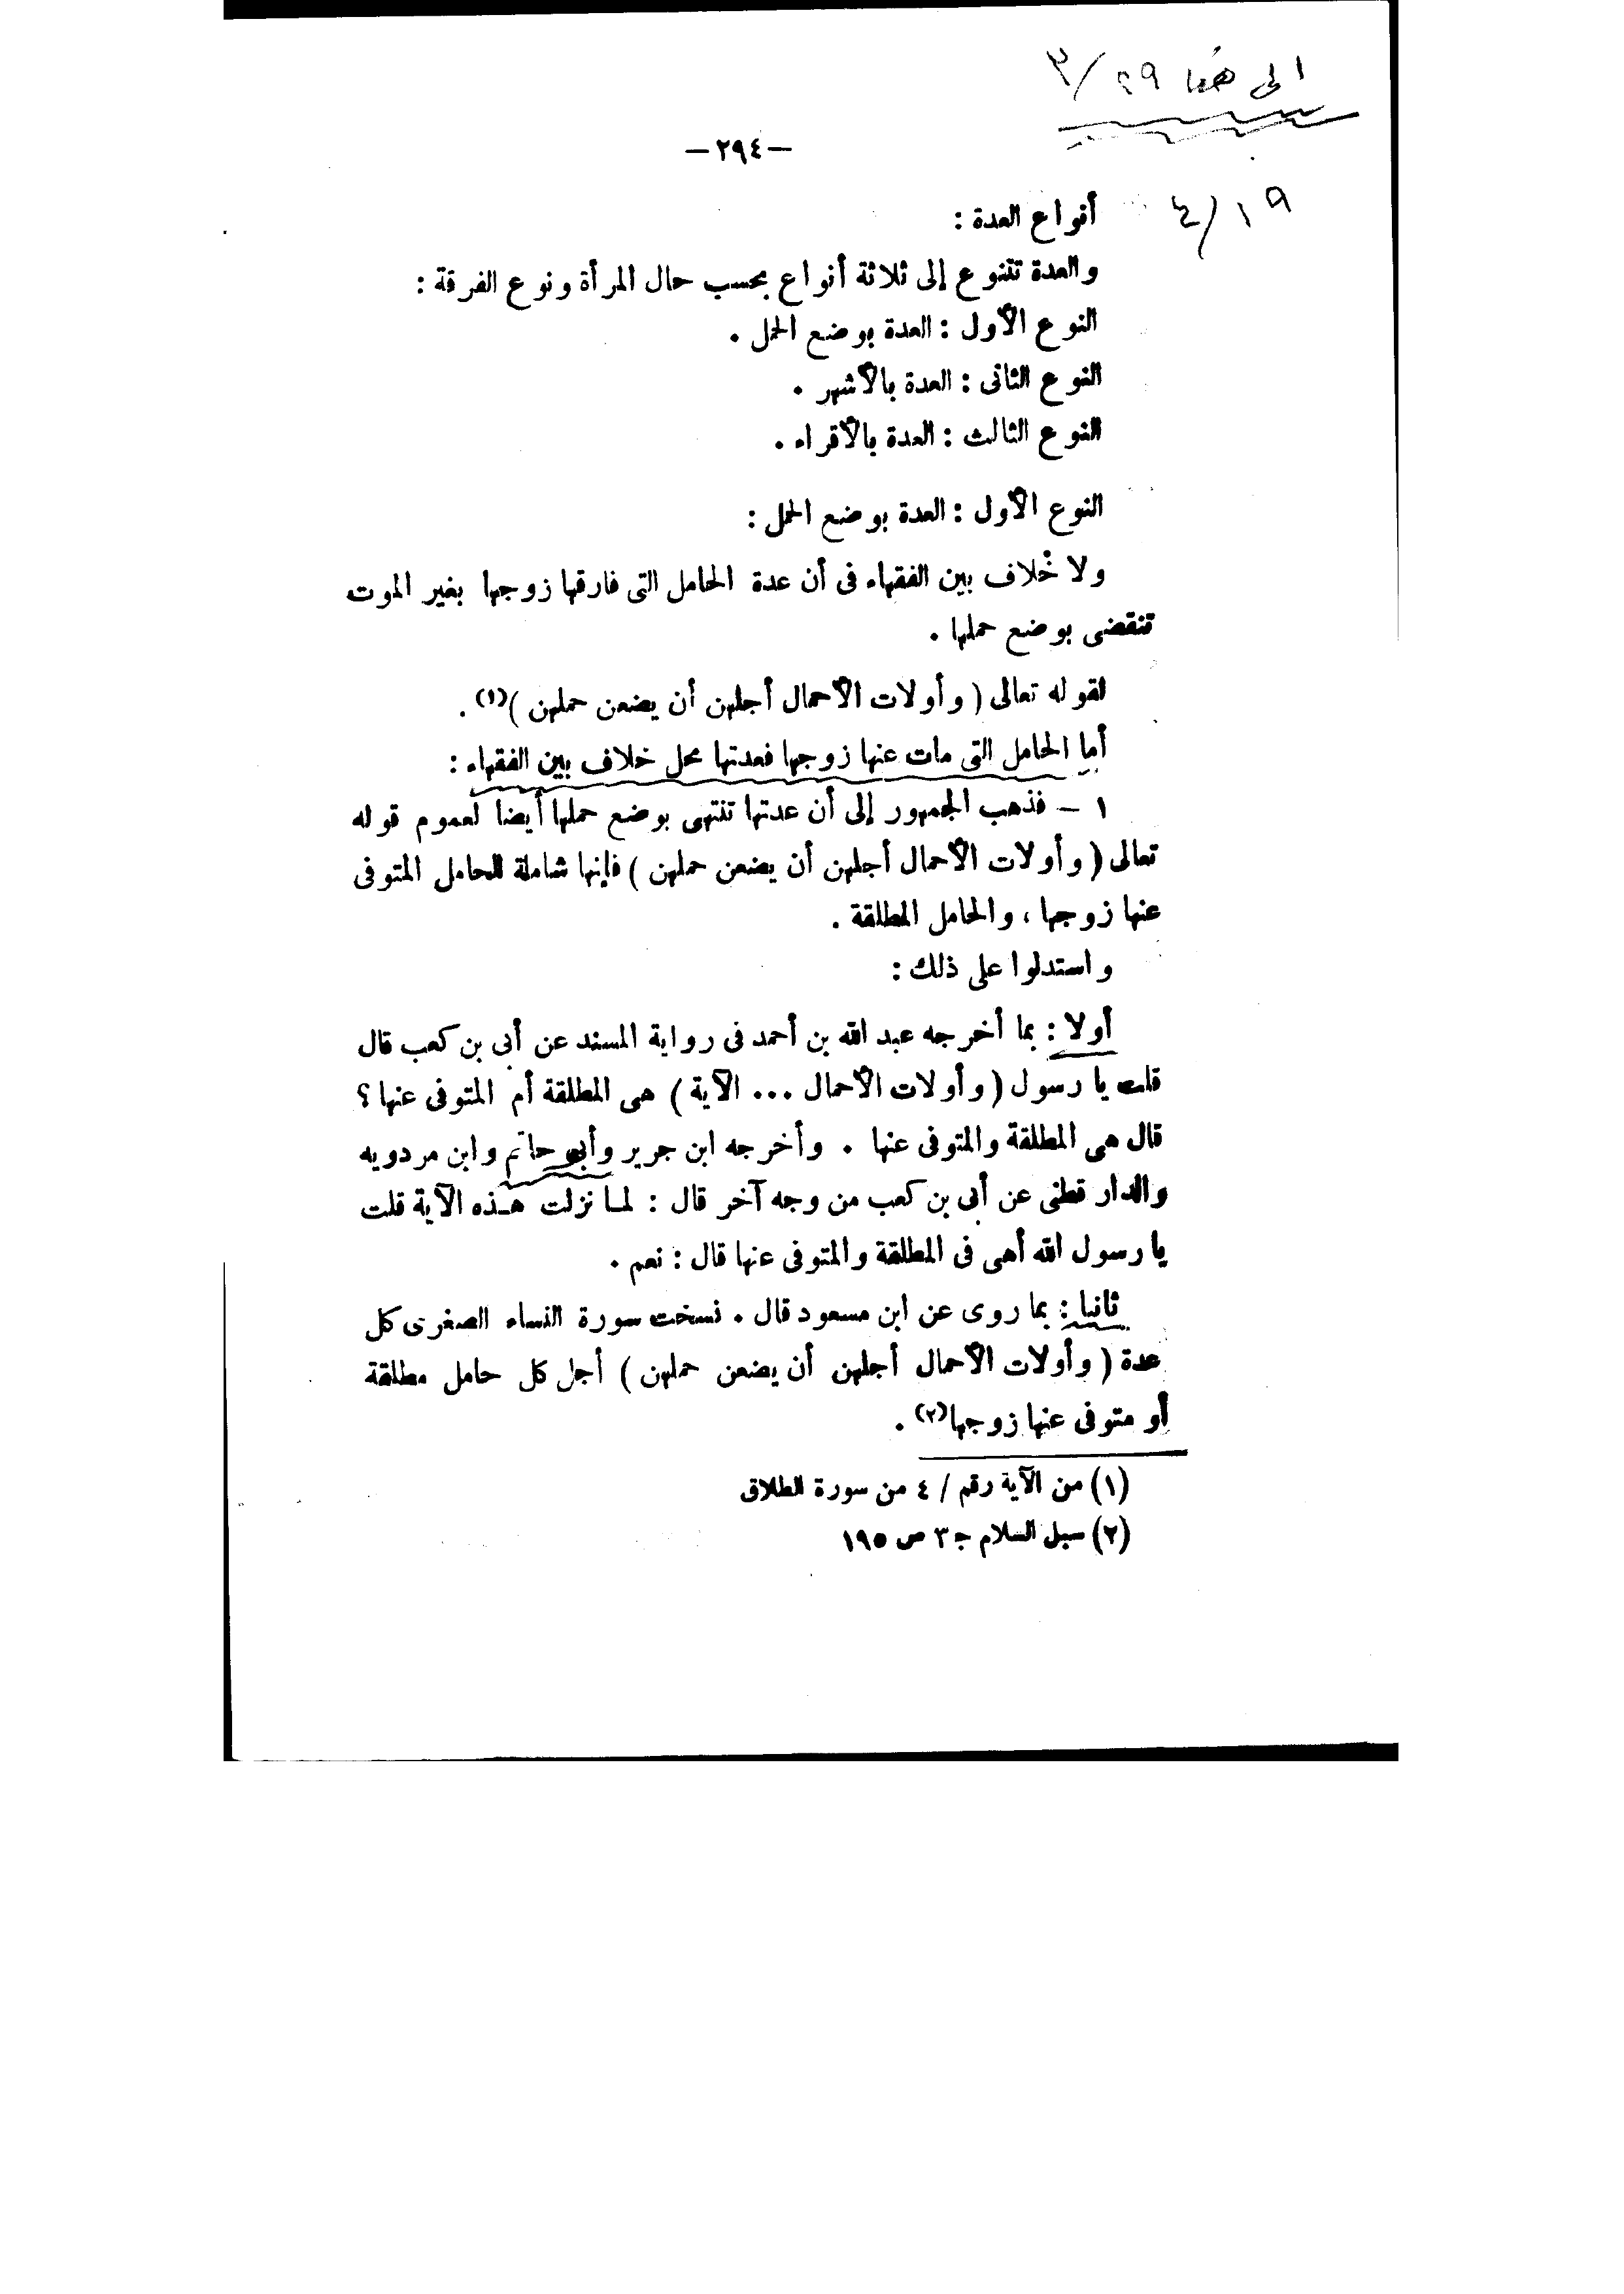 الى هنا ٢٩/٣
-٢٩٤-
١٩/٤
أنواع العدة :
والعدة تتنوع إلى ثلاثة أنواع بحسب حال المرأة ونوع الفرقة :
النوع الأول : العدة بوضع الحمل .
النوع الثانى : العدة بالأشهر .
النوع الثالث : العدة بالأقراء .
النوع الأول : العدة بوضع الحمل :
ولا خلاف بين الفقهاء فى أن عدة الحامل التى فارقها زوجها بغير الموت
تنقضى بوضع حملها .
لقوله تعالى ( وأولات الأحمال أجلهن أن يضعن حملهن )(١) .
أما الحامل التى مات عنها زوجها فعدتها محل خلاف بين الفقهاء :
١ - فذهب الجمهور إلى أن عدتها تنتهى بوضع حملها أيضا لعموم قوله
تعالى ( وأولات الأحمال أجلهن أن يضعن حملهن ) فإنها شاملة للحامل المتوفى
عنها زوجها ، والحامل المطلقة .
واستدلوا على ذلك :
أولا : بما أخرجه عبد الله بن أحمد فى رواية المسند عن أبى بن كعب قال
قلت يا رسول ( وأولات الأحمال ... الآية ) هى المطلقة أم المتوفى عنها ؟
قال هى المطلقة والمتوفى عنها . وأخرجه ابن جرير وأبى حاتم وابن مردويه
والدار قطنى عن أبى بن كعب من وجه آخر قال : لما نزلت هذه الآية قلت
يا رسول الله أهى فى المطلقة والمتوفى عنها قال : نعم .
ثانيا : بما روى عن ابن مسعود قال . نسخت سورة النساء الصغرى كل
عدة ( وأولات الأحمال أجلهن أن يضعن حملهن ) أجل كل حامل مطلقة
أو متوفى عنها زوجها(٢) .
(١) من الآية رقم / ٤ من سورة الطلاق
(٢) سبل السلام ج ٣ ص ١٩٥